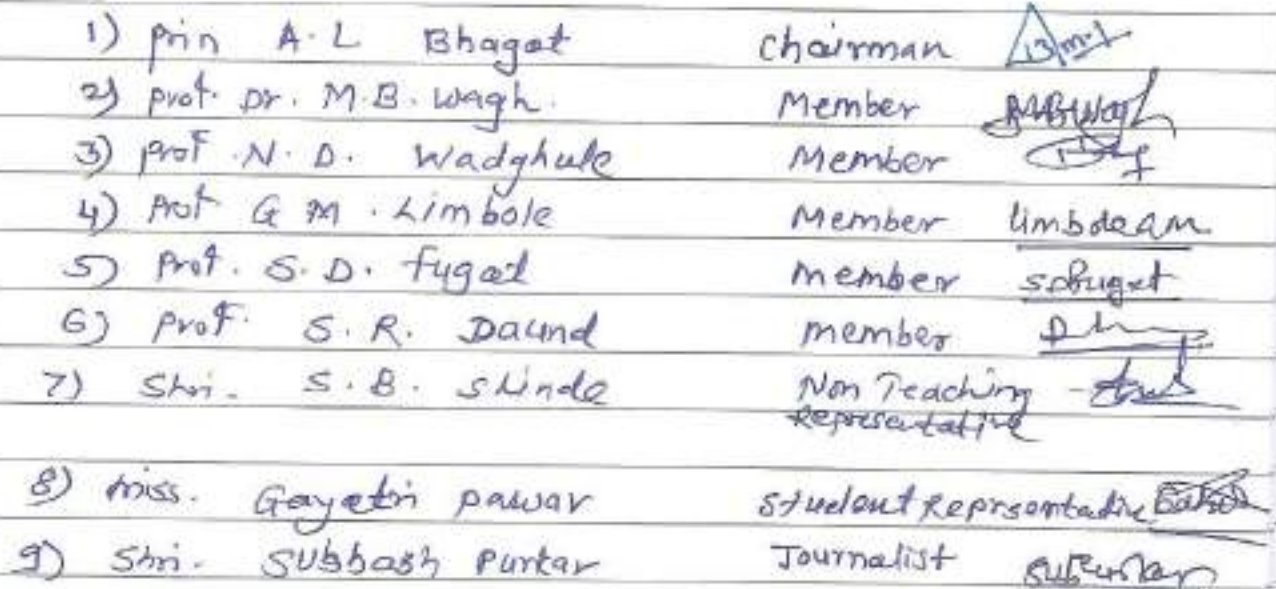 1) Prin A.L Bhagat Chairman
2) Prof. Dr. M.B. Wagh. Member MBWagh
3) Prof .N.D. Wadghule Member
4) Prof G M . Limbole Member LimboleGM
5) Prof. S.D. Fugat member SDFugat
6) Prof. S.R. Daund member
7) Shri. S.B. Shinde Non Teaching
Representative
8) Miss. Gayatri Pawar Student Reprsentative
9) Shri. Subhash Purkar Journalist